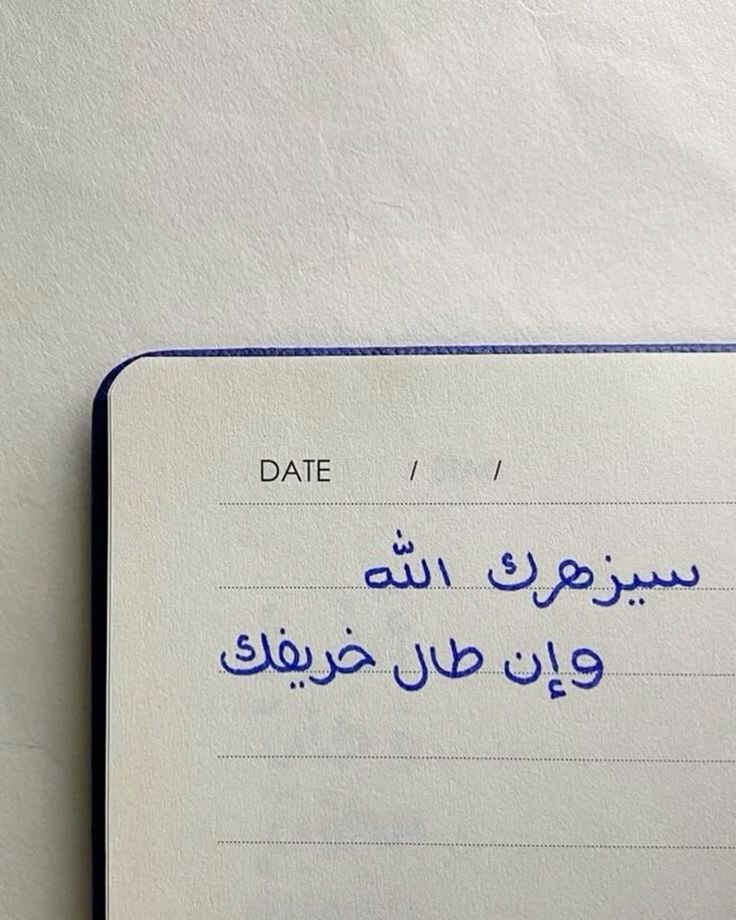 DATE / /
سيزهرك الله
وإن طال خريفك